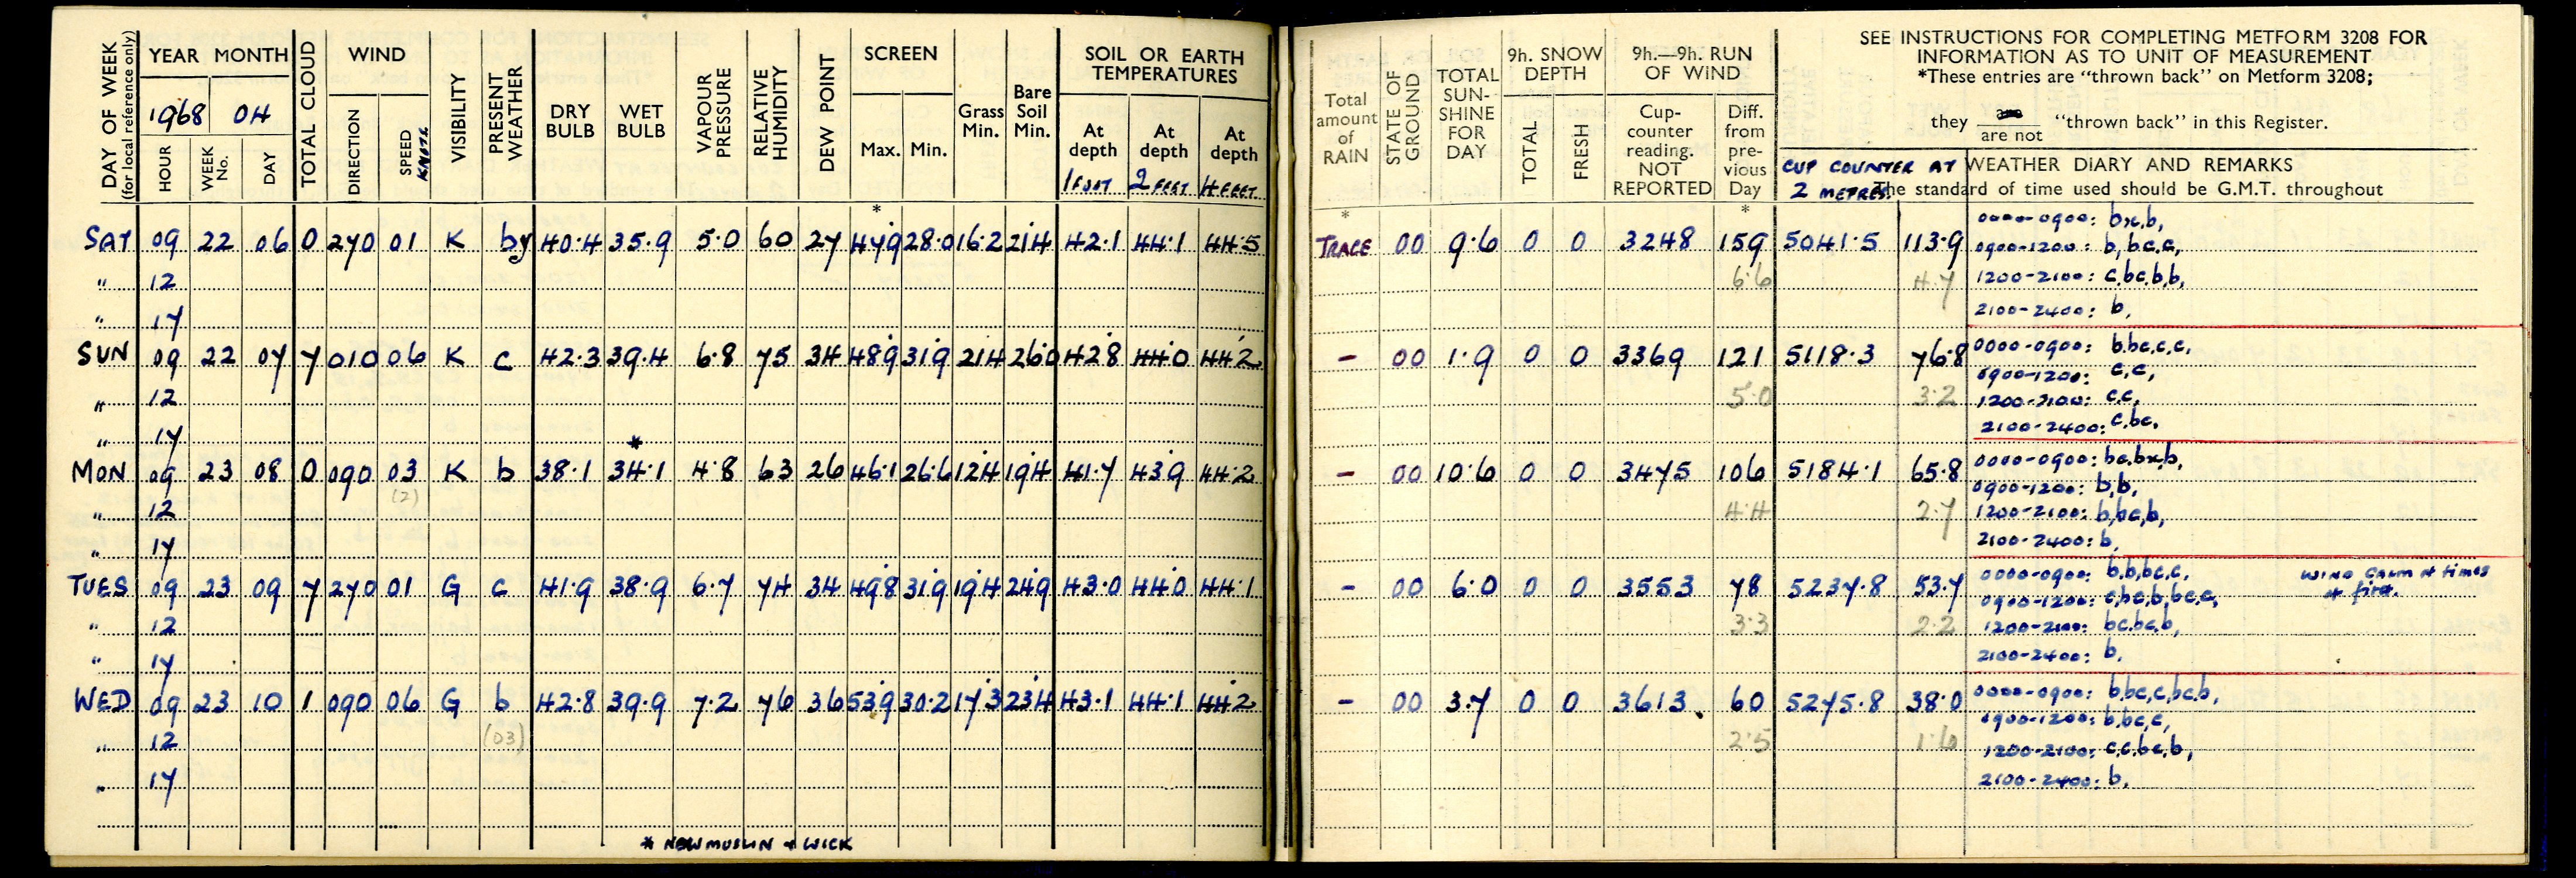 DAY OF WEEK (for local reference only) YEAR MONTH TOTAL CLOUD WIND VISIBILITY PRESENT WEATHER DRY BULB WET BULB VAPOUR PRESSURE RELATIVE HUMIDITY DEW POINT SCREEN Grass Min. Bare Soil Min. SOIL OR EARTH TEMPERATURES
1968 04
HOUR WEEK No. DAY DIRECTION SPEED KNOTS Max. Min. At depth At depth At depth
1 FOOT 2 FEET 4 FEET
*
SAT 09 22 06 0 270 01 K by 40.4 35.9 5.0 60 27 47.9 28.0 16.2 21.4 42.1 44.1 44.5
" 12
" 17
SUN 09 22 07 7 010 06 K c 42.3 39.4 6.8 75 34 48.9 31.9 21.4 26.0 42.8 44.0 44.2
" 12
" 17 *
MON 09 23 08 0 090 03 K b 38.1 34.1 4.8 63 26 46.1 26.6 12.4 19.4 41.7 43.9 44.2
(2)
" 12
" 17
TUES 09 23 09 7 270 01 G c 41.9 38.9 6.7 74 34 49.8 31.9 19.4 24.9 43.0 44.0 44.1
" 12
" 17
WED 09 23 10 1 090 06 G b 42.8 39.9 7.2 76 36 53.9 30.2 17.3 23.4 43.1 44.1 44.2
" 12 (03)
" 17
* NEW MUSLIN + WICK
Total amount of RAIN STATE OF GROUND TOTAL SUN-SHINE FOR DAY 9h. SNOW DEPTH 9h.—9h. RUN OF WIND
TOTAL FRESH Cup-counter reading. NOT REPORTED Diff. from pre-vious Day
SEE INSTRUCTIONS FOR COMPLETING METFORM 3208 FOR
INFORMATION AS TO UNIT OF MEASUREMENT
*These entries are "thrown back" on Metform 3208;
they are not "thrown back" in this Register.
CUP COUNTER AT 2 METRES
WEATHER DIARY AND REMARKS
The standard of time used should be G.M.T. throughout
* *
TRACE 00 9.6 0 0 3248 159 5041.5 113.9 0000-0900: bx,b,
0900-1200: b,bc,c,
6.6 4.7 1200-2100: c,bc,b,b,
2100-2400: b,
- 00 1.9 0 0 3369 121 5118.3 76.8 0000-0900: b.bc,c,c,
0900-1200: c,c,
5.0 3.2 1200-2100: c.c,
2100-2400: c,bc,
- 00 10.6 0 0 3475 106 5184.1 65.8 0000-0900: bc,bx,b,
0900-1200: b,b,
4.4 2.7 1200-2100: b,bc,b,
2100-2400: b,
- 00 6.0 0 0 3553 78 5237.8 53.7 0000-0900: b.b,bc,c, WIND CALM at times at first.
0900-1200: c,bc,b,bc,c,
3.3 2.2 1200-2100: bc,bc,b,
2100-2400: b,
- 00 3.7 0 0 3613 60 5275.8 38.0 0000-0900: b,bc,c,bc,b,
0900-1200: b,bc,c,
2.5 1.6 1200-2100: c,c,bc,b,
2100-2400: b,